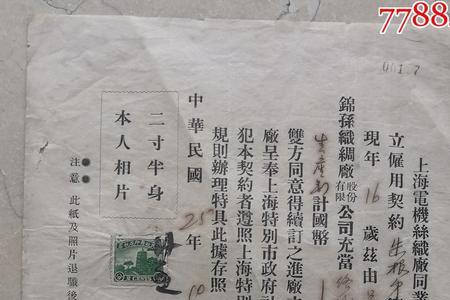 7788
001.7
上海電機絲織廠同業
立僱用契約朱根
現年16歲茲由
錦孫織綢廠股份有限公司充當
生產部計國幣
雙方同意得續訂之進廠
廠呈奉上海特別市政府社
犯本契約者遵照上海特別
規則辦理特具此據存照
中華民國25年10
二寸半身
本人相片
注意 此紙及照片退職後